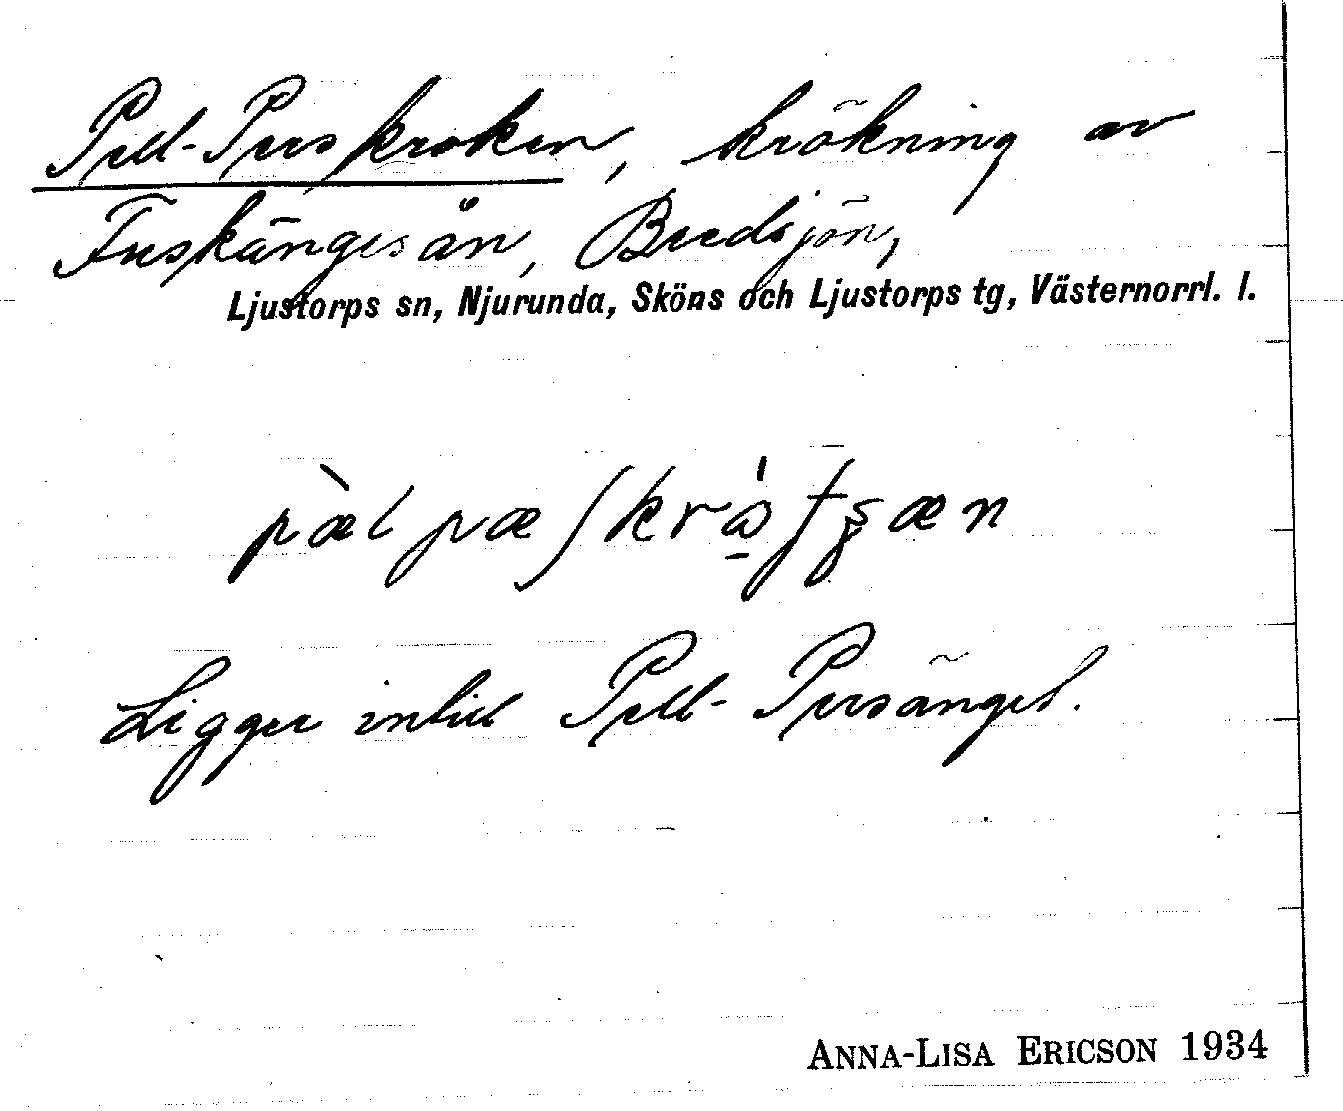 Pell-Perskroken, krökning av
Fuskängesån, Bredsjön,
Ljustorps sn, Njurunda, Sköns och Ljustorps tg, Västernorrl. l.
Ligger intill Pell-Persänget.
ANNA-LISA ERICSON 1934